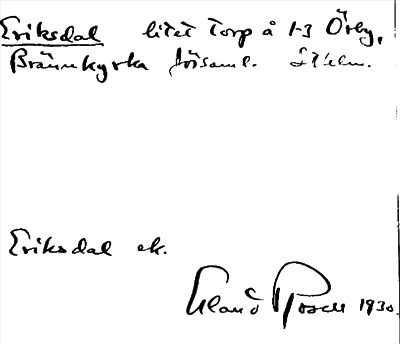 Eriksdal litet torp å 1-3 Örby,
Brännkyrka församl. Sthlm.
Eriksdal ek.
1930.